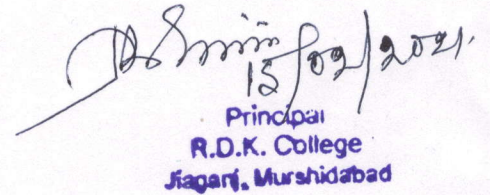 15/02/2021.
Principal
R.D.K. College
Jiaganj, Murshidabad